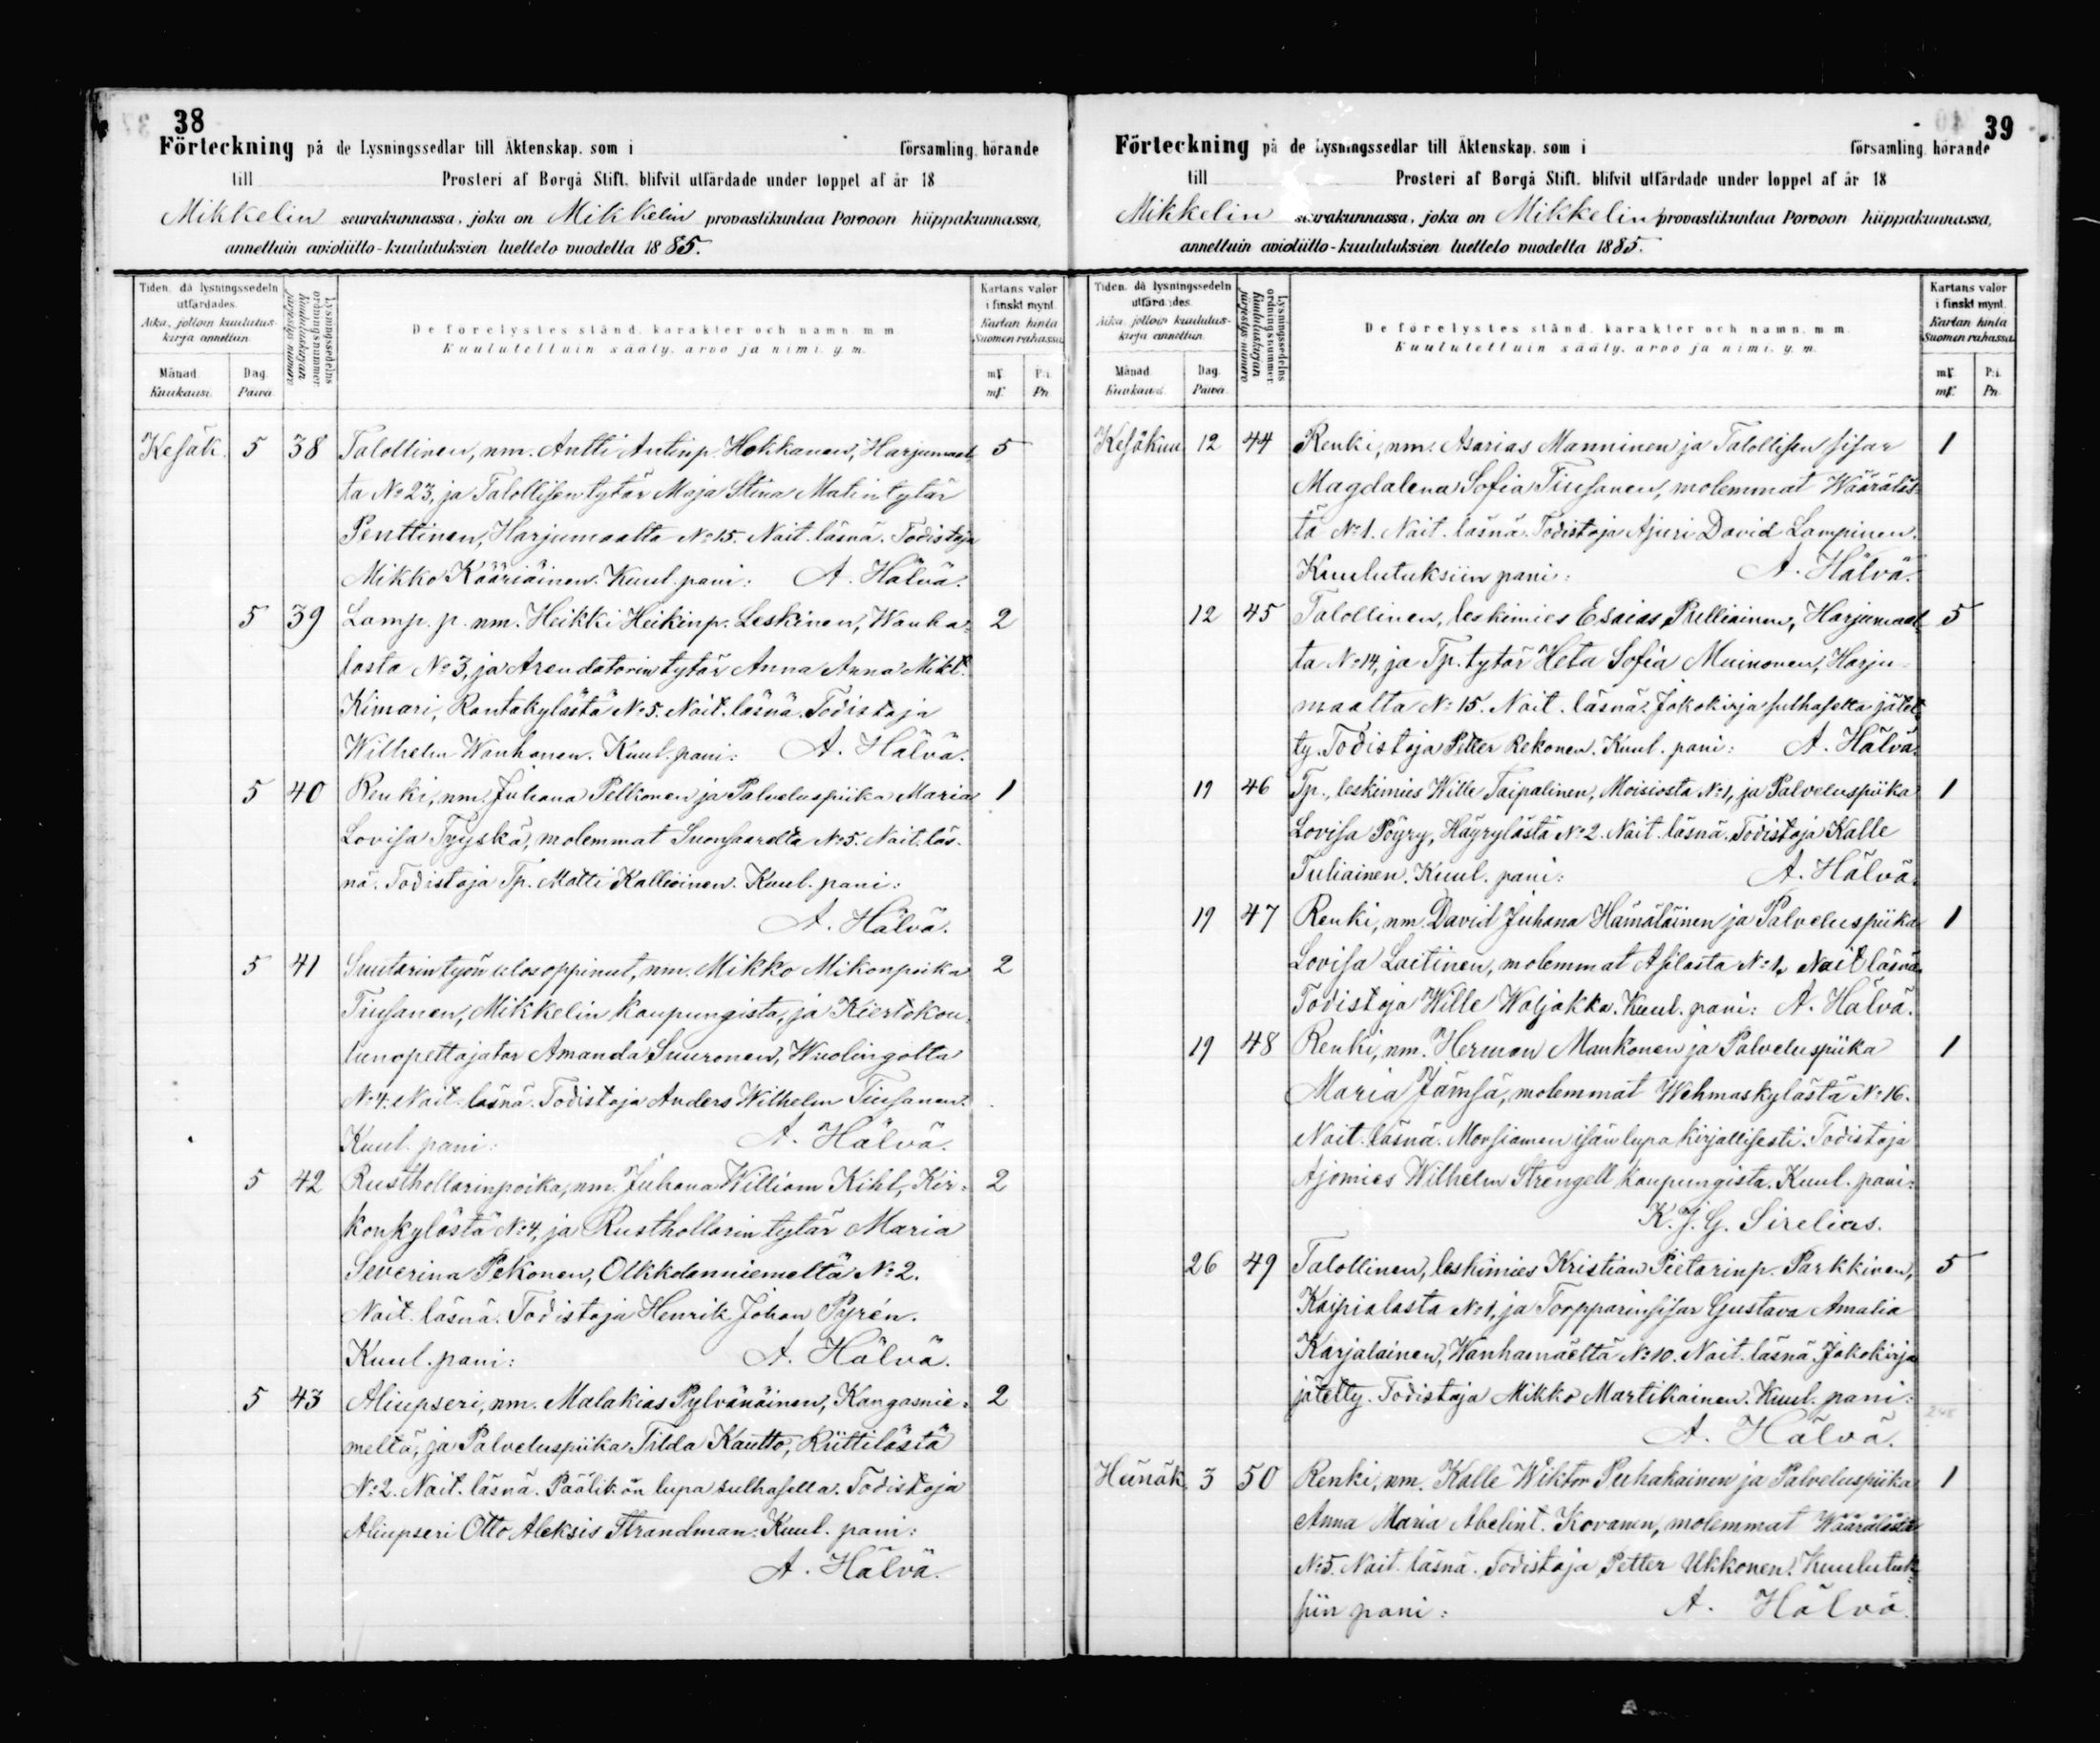 38
Förteckning på de Lysningssedlar till Äktenskap, som i församling, hörande
till Prosteri af Borgå Stift, blifvit utfärdade under loppet af år 18
Mikkelin seurakunnassa, joka on Mikkelin provastikuntaa Porvoon hiippakunnassa,
annettuin avioliitto-kuulutuksien luettelo vuodelta 1885.
Tiden, då lysningssedeln utfärdades.
Aika, jolloin kuulutus-kirja annettiin.
Månad Kuukausi.
Dag. Päivä
Lysningssedelns ordningsnummer.
Kuulutuskirjan järjestys-numero
De förelystes stånd, karakter och namn, m. m.
Kuulutettuin sääty, arvo ja nimi, y. m.
Kartans valör i finskt mynt.
Kartan hinta Suomen rahassa.
mf. P:i.
mf. Pn.
Kesäk. 5 38 Talollinen, nm. Antti Antinp. Hokkanen, Harjumaal- 5
ta No 23, ja Talollisen tytär Maja Stina Matintytär
Penttinen, Harjumaalta No 15. Nait. läsnä. Todistaja
Mikko Kääriäinen. Kuul. pani: A. Hälvä.
5 39 Lamp. p. nm. Heikki Heikinp. Leskinen, Wanha- 2
lasta No 3, ja Arendatorin tytär Anna Anna Mikt.
Kimari, Rantakylästä No 5. Nait. läsnä. Todistaja
Wilhelm Wanhanen. Kuul. pani: A. Hälvä.
5 40 Renki, nm. Juhana Pelkonen ja Palveluspiika Maria 1
Lovisa Tyyskä, molemmat Suonsaarelta No 5. Nait. läs-
nä. Todistaja Tp. Matti Kallioinen. Kuul. pani:
A. Hälvä.
5 41 Suutarintyön ulosoppinut, nm. Mikko Mikonpoika 2
Tiusanen, Mikkelin kaupungista, ja Kiertokou-
lunopettajatar Amanda Suuronen, Wuolingolta
No 4. Nait. läsnä. Todistaja Anders Wilhelm Tiusanen.
Kuul. pani: A. Hälvä.
5 42 Rusthollarinpoika, nm. Juhana William Kihl, Kir- 2
konkylästä No 4, ja Rusthollarin tytär Maria
Severina Pekonen, Olkkolanniemeltä No 2.
Nait. läsnä. Todistaja Henrik Johan Pyrén.
Kuul. pani: A. Hälvä.
5 43 Aliupseri, nm. Malakias Pylvänäinen, Kangasnie- 2
meltä, ja Palveluspiika Tilda Kautto, Riittilästä
No 2. Nait. läsnä. Päälik:ön lupa sulhasella. Todistaja
Aliupseri Otto Aleksis Strandman. Kuul. pani:
A. Hälvä.
39
Förteckning på de Lysningssedlar till Äktenskap, som i församling, hörande
till Prosteri af Borgå Stift, blifvit utfärdade under loppet af år 18
Mikkelin seurakunnassa, joka on Mikkelin provastikuntaa Porvoon hiippakunnassa,
annettuin avioliitto-kuulutuksien luettelo vuodelta 1885.
Tiden, då lysningssedeln utfärdades.
Aika, jolloin kuulutus-kirja annettiin.
Månad Kuukausi.
Dag. Päivä.
Lysningssedelns ordningsnummer.
Kuulutuskirjan järjestys-numero
De förelystes stånd, karakter och namn, m. m.
Kuulutettuin sääty, arvo ja nimi, y. m.
Kartans valör i finskt mynt.
Kartan hinta Suomen rahassa.
mf. P:i.
mf. Pn.
Kesäkuu 12 44 Renki, nm. Asarias Manninen ja Talollisen sisar 1
Magdalena Sofia Tiusanen, molemmat Wääräläs-
tä No 1. Nait. läsnä. Todistaja Ajuri David Lampinen.
Kuulutuksiin pani: A. Hälvä.
12 45 Talollinen, leskimies Esaias Pulliainen, Harjumaal- 5
ta No 14, ja Tp. tytär Heta Sofia Muinonen, Harju-
maalta No 15. Nait. läsnä. Jakokirja sulhaselta jätet-
ty. Todistaja Petter Rekonen. Kuul. pani: A. Hälvä.
19 46 Tp., leskimies Wille Taipalinen, Moisiosta No 1, ja Palveluspiika 1
Lovisa Pöyry, Häyrylästä No 2. Nait. läsnä. Todistaja Kalle
Tuliainen. Kuul. pani: A. Hälvä.
19 47 Renki, nm. David Juhana Hämäläinen ja Palveluspiika 1
Lovisa Laitinen, molemmat Asilasta No 1. Nait. läsnä.
Todistaja Wille Waljakka. Kuul. pani: A. Hälvä.
19 48 Renki, nm. Herman Maukonen ja Palveluspiika 1
Maria Jämsä, molemmat Wehmaskylästä No 16.
Nait. läsnä. Morsiamen isän lupa kirjallisesti. Todistaja
Ajomies Wilhelm Strengell kaupungista. Kuul. pani:
K. J. G. Sirelius.
26 49 Talollinen, leskimies Kristian Pietarinp. Parkkinen, 5
Kaipialasta No 1, ja Torpparinsisar Gustava Amalia
Karjalainen, Wanhamäeltä No 10. Nait. läsnä. Jakokirja
jätetty. Todistaja Mikko Martikainen. Kuul. pani:
A. Hälvä.
Heinäk. 3 50 Renki, nm. Kalle Wiktor Puhakainen ja Palveluspiika 1
Anna Maria Abelint. Kovanen, molemmat Wäärälästä
No 5. Nait. läsnä. Todistaja Petter Ukkonen. Kuulutuk-
siin pani: A. Hälvä.